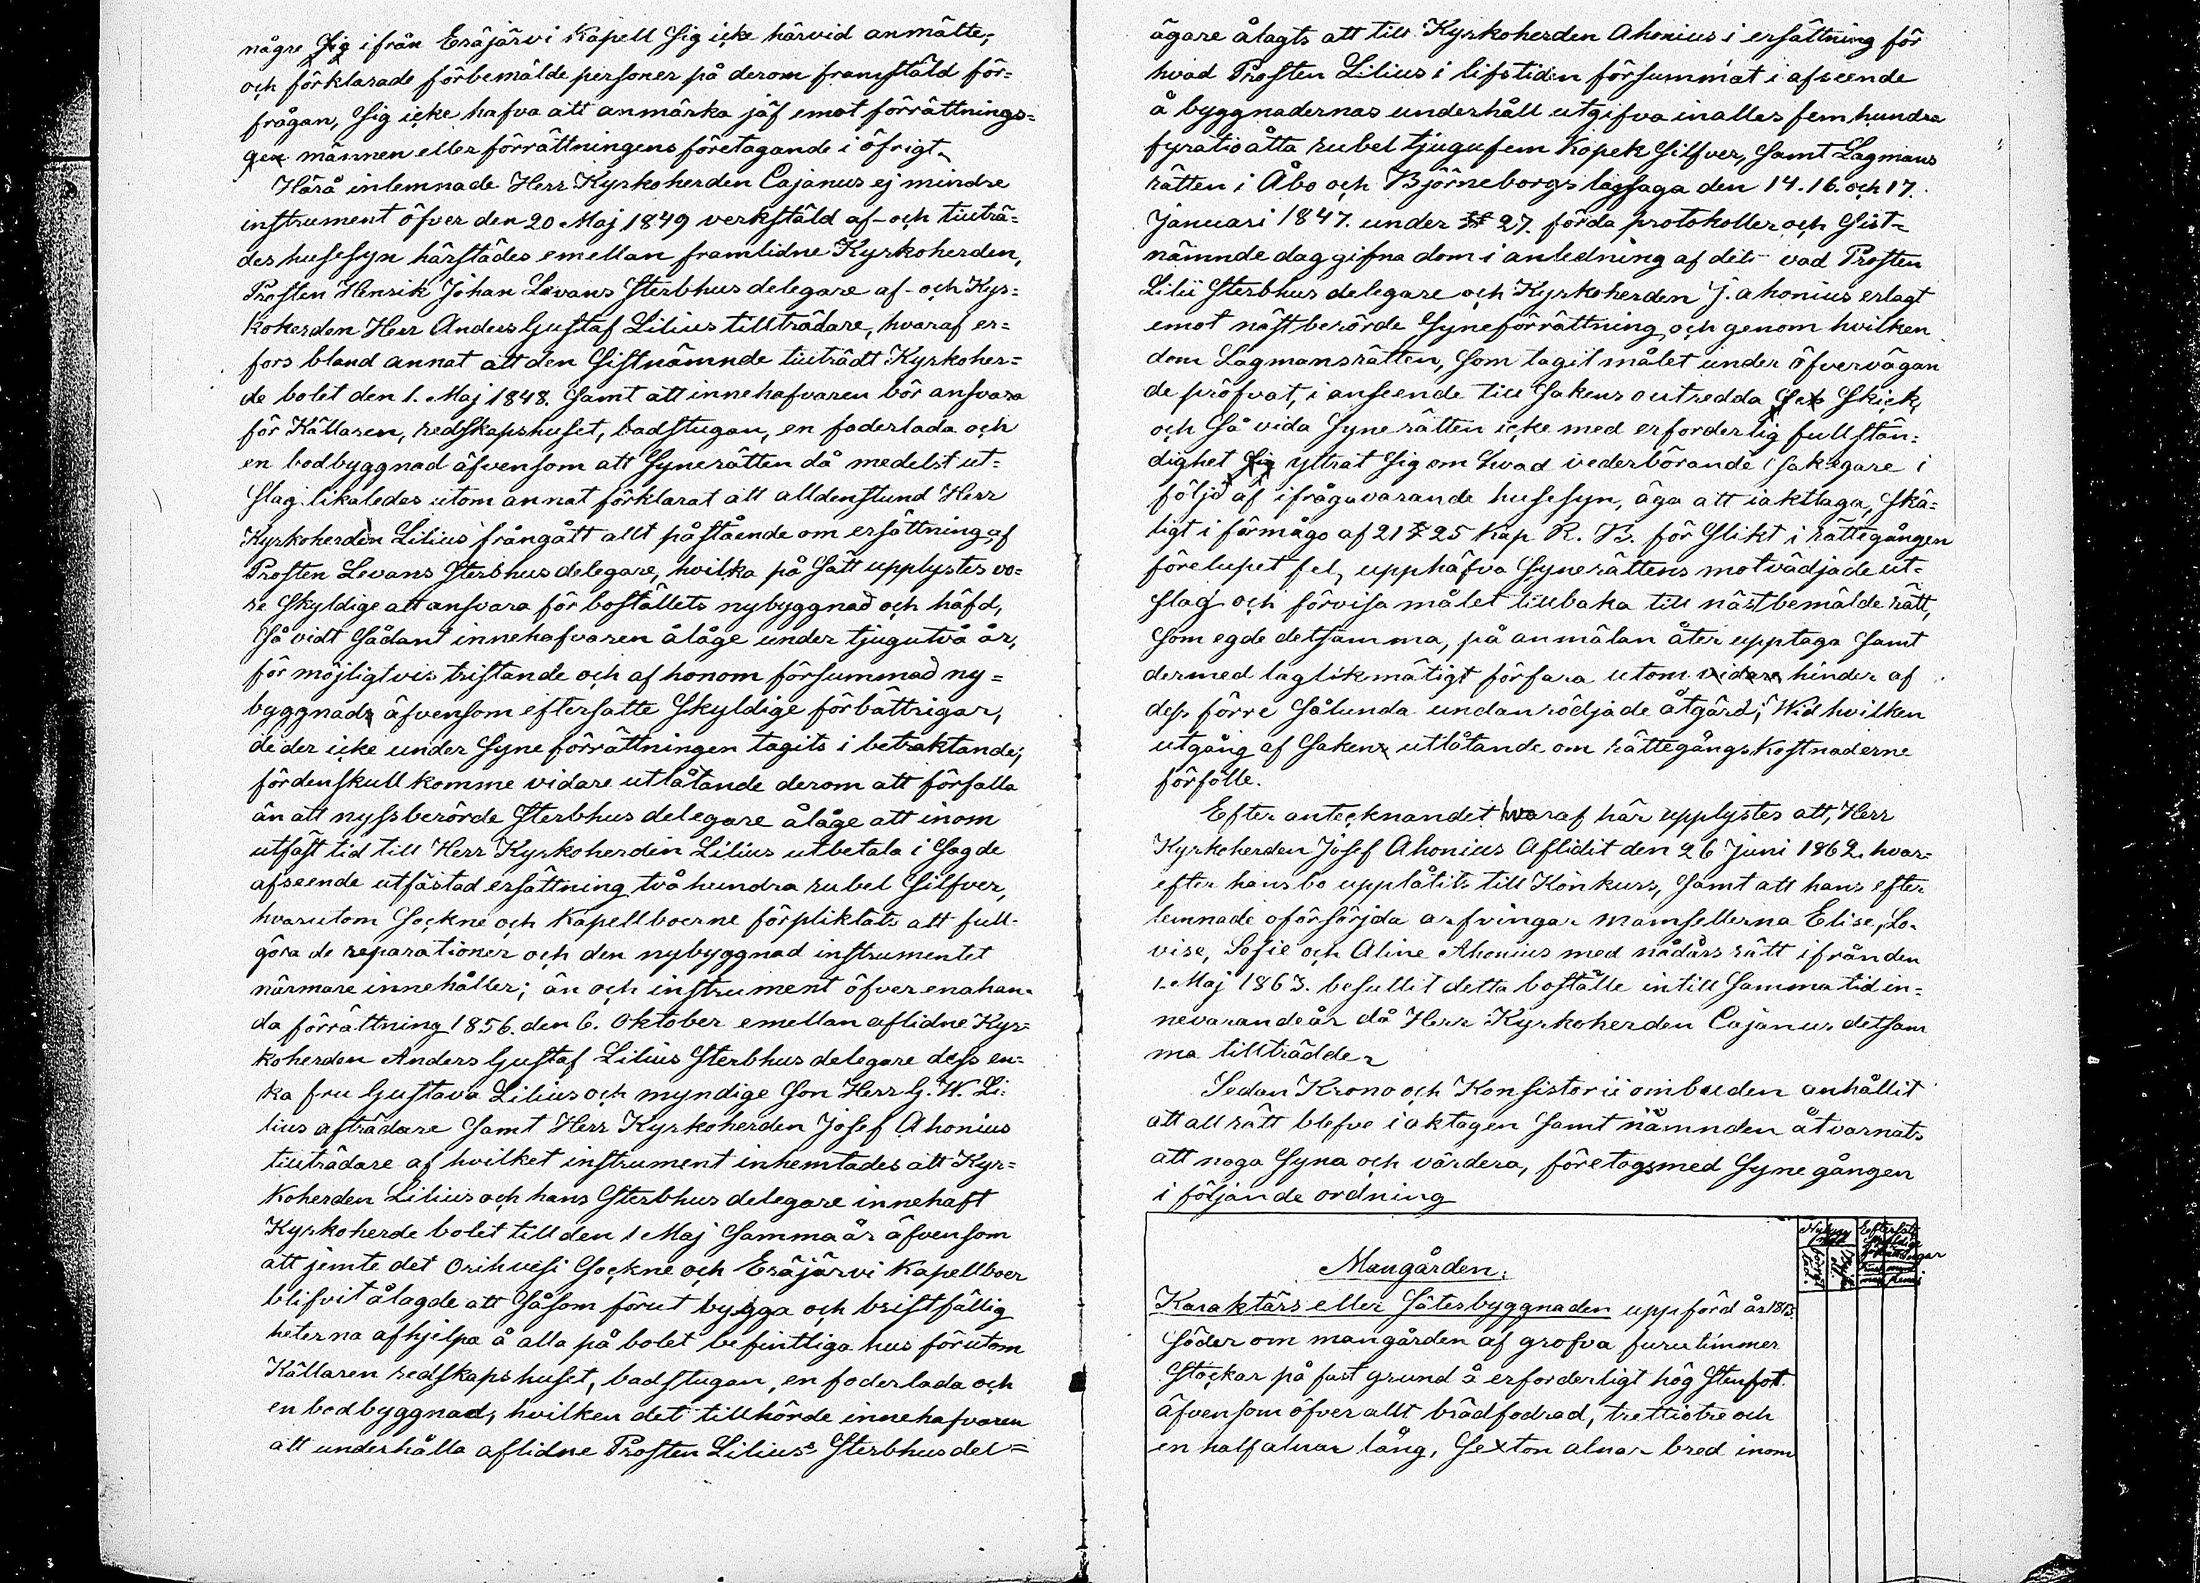 någre sig ifrån Eräjärvi Kapell sig icke härvid anmälte;
och förklarade förbemälde personer på derom framstäld för=
frågan, sig icke hafva att anmärka jäf emot förrättnings=
gen männen eller förrättningens företagande i öfrigt.
Härå inlemnade Herr Kyrkoherden Cajanus ej mindre
instrument öfver den 20 Maj 1849 verkstäld af- och tillträ=
des husesyn härstädes emellan framlidne Kyrkoherden,
Prosten Henrik Johan Levans Sterbhusdelegare af- och Kyr=
koherden Herr Anders Gustaf Lilius tillträdare, hvaraf er=
fors bland annat att den sistnämnde tillträdt Kyrkoher=
de bolet den 1. Maj 1848. samt att innehafvaren bör ansvara
för Källaren, redskapshuset, badstugan, en foderlada och
en bodbyggnad äfvensom att Synerätten då medelst ut=
slag likaledes utom annat förklarat att alldenstund Herr
Kyrkoherden Lilius frångått allt påstående om ersättning af
Prosten Levans Sterbhusdelegare, hvilka på sätt upplystes vo=
re skyldige att ansvara för boställets nybyggnad och häfd,
så vidt sådant innehafvaren ålåge under tjugutvå år,
för möjligtvis tristande och af honom försummad ny=
byggnad äfvensom eftersatte skyldige förbättrigar,
de der icke under Syneförrättningen tagits i betraktande;
fördenskull komme vidare utlåtande derom att förfalla
än att nyssberörde Sterbhusdelegare ålåge att inom
utfäst tid till Herr Kyrkoherden Lilius utbetala i sagde
afseende utfästad ersättning två hundra rubel Silfver,
hvarutom Sockne och Kapellboerne förpliktats att full-
göra de reparationer och den nybyggnad instrumentet
närmare innehåller; än och instrument öfver enahan-
da förrättning 1856. den 6. Oktober emellan aflidne Kyr=
koherden Anders Gustaf Lilius Sterbhusdelegare dess en=
ka fru Gustava Lilius och myndige Son Herr G. W. Li=
lius afträdare samt Herr Kyrkoherden Josef Ahonius
tillträdare af hvilket instrument inhemtades att Kyr=
koherden Lilius och hans Sterbhusdelegare innehaft
Kyrkoherde bolet till den 1 Maj samma år äfvensom
att jemte det Orihvesi Sockne och Eräjärvi Kapellboer
blifvit ålagde att såsom förut bygga och bristfällig
heterna afhjelpa å alla på bolet befintliga hus förutom
Källaren redskapshuset, badstugan, en foderlada och
en bodbyggnad, hvilken det tillhörde innehafvaren
att underhålla aflidne Prosten Lilius's Sterbhusdel=
ägare ålagts att till Kyrkoherden Ahonius i ersättning för
hvad Prosten Lilius i lifstiden försummat i afseende
å byggnadernas underhåll utgifva inalles fem hundra
fyratio åtta rubel tjugufem Kopek Silfver, samt Lagmans
rätten i Åbo och Björneborgs lagsaga den 14. 16. och 17.
Januari 1847. under # 27. förda protokoller och sist=
nämnde dag gifna dom i anledning af dett vad Prosten
Lilii Sterbhusdelegare och Kyrkoherden J. Ahonius erlagt
emot näst berörde Syneförrättning, och genom hvilken
dom Lagmansrätten, som tagit målet under öfvervägan
de pröfvat, i anseende till Sakens outredda skick,
och så vida Synerätten icke med erforderlig fullstän=
dighet sig yttrat sig om hvad vederbörande Sakegare i
följd af ifrågavarande husesyn, äga att iakttaga, skä=
ligt i förmågo af 21 § 25 Kap R. B. för slikt i rättegången
förelupet fel, upphäfva Synerättens motvädjade ut=
slag och förvisa målet tillbaka till nästbemälde rätt,
som egde detsamma, på anmälan åter upptaga samt
dermed laglikmätigt förfara utom vidare hinder af
dess förre sålunda undanrödjade åtgärd; Wid hvilken
utgång af saken utlåtande om rättegångskostnaderne
förfölle.
Efter antecknandet hvaraf här upplystes att, Herr
Kyrkoherden Josef Ahonius Aflidit den 26 Juni 1862. hvar=
efter hans bo upplåtits till Konkurs, samt att hans efter
lemnade oförsörjda arfvingar mamsellerna Elise, Lo-
vise, Sofie och Aline Ahonius med nådårs rätt ifrån den
1. Maj 1863. besuttit detta boställe intill samma tid in=
nevarande år då Herr Kyrkoherden Cajanus detsam
ma tillträdde.
Sedan Krono och Konsistorii ombuden anhållit
att all rätt blefve iaktagen samt nämnden åtvarnats
att noga syna och värdera, företogs med Synegången
i följande ordning
Mangården.
Karaktärs eller Sätesbyggnaden uppförd år 1813.
söder om mangården af grofva furu timmer
stockar på fast grund å erforderligt hög stenfot.
äfvensom öfver allt brädfodrad, trettiotre och
en half alnar lång, sexton alnar bred inom